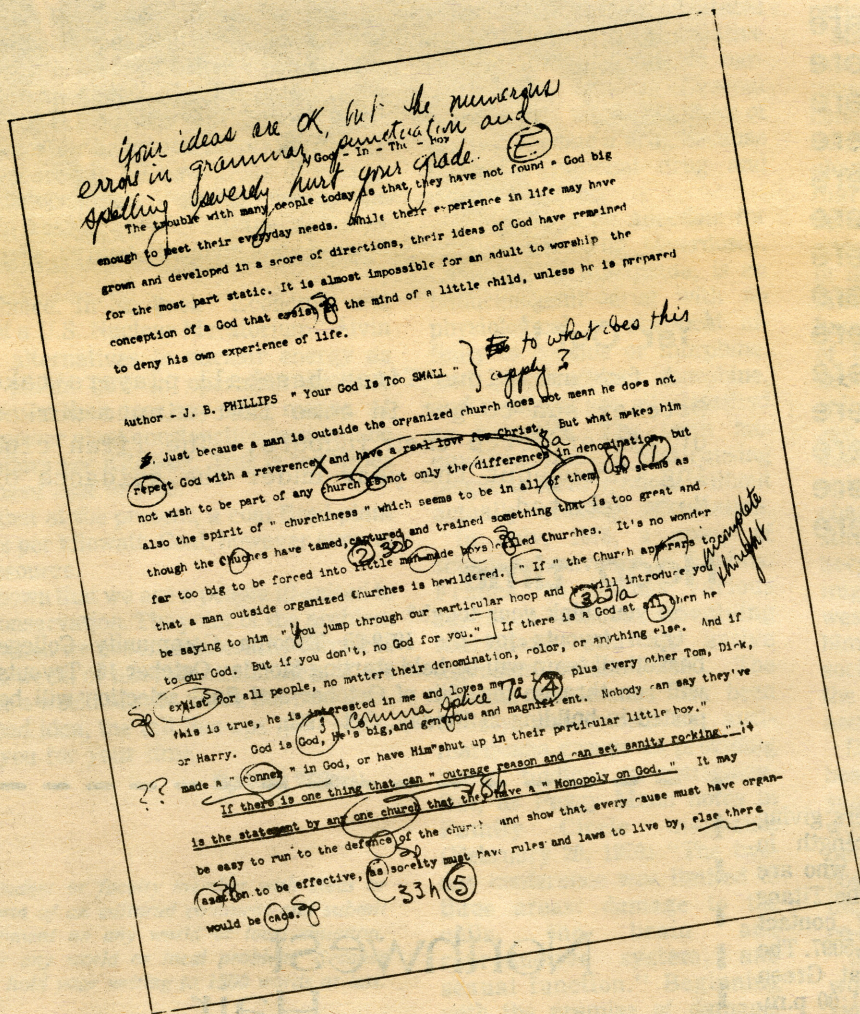 Your ideas are OK, but the numerous
errors in grammar, punctuation and
spelling severely hurt your grade. E
God - In - The - Box
The trouble with many people today is that, they have not found a God big
enough to meet their everyday needs. While their experience in life may have
grown and developed in a score of directions, their ideas of God have remained
for the most part static. It is almost impossible for an adult to worship the
conception of a God that exsist in the mind of a little child, unless he is prepared
Sp
to deny his own experience of life.
to what does this
apply?
Author - J. B. PHILLIPS " Your God Is Too SMALL "
Just because a man is outside the organized church does not mean he does not
repect God with a reverence and have a real love for Christ. But what makes him
8a
not wish to be part of any church is not only the differences in denomination, but
8b 1
also the spirit of " churchiness " which seems to be in all of them. It seems as
though the Chuches have tamed, captured and trained something that is too great and
2 30b Sp
far too big to be forced into little man-made boys called Churches. It's no wonder
that a man outside organized Churches is bewildered. " If " the Church appears to
incomplete
thought
be saying to him "You jump through our particular hoop and we will introduce you
3 31a
to our God. But if you don't, no God for you." If there is a God at all, then he
Sp
exsist for all people, no matter their denomination, color, or anything else. And if
this is true, he is interested in me and loves me as I am plus every other Tom, Dick,
3 Comma splice 7a 4
or Harry. God is God, He's big, and generous and magnificent. Nobody can say they've
??
made a " conner " in God, or have Him "shut up in their particular little box."
If there is one thing that can " outrage reason and can set sanity rocking " it
8b
is the statement by any one church that they have a " Monopoly on God. " It may
be easy to run to the defence of the church and show that every cause must have organ-
Sp Sp
asation to be effective, as soceity must have rules and laws to live by, else there
33h 5
would be caos. Sp